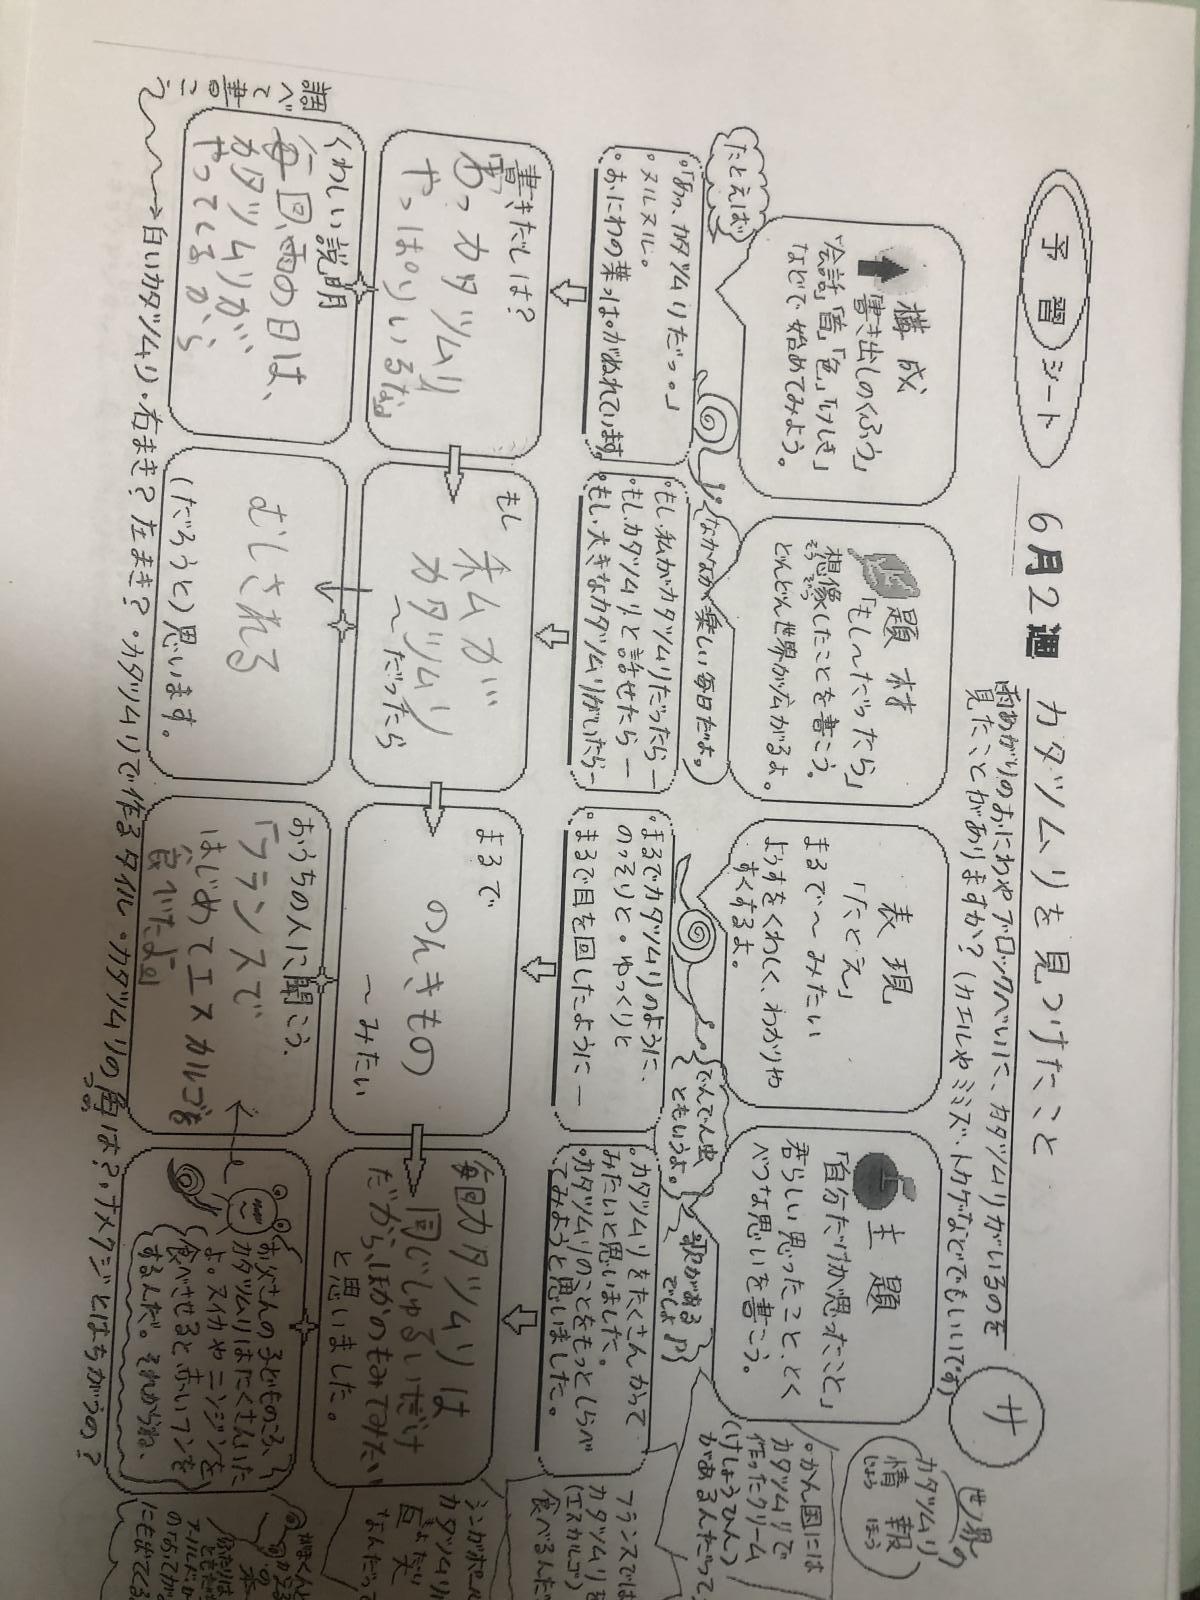 予習シート
6月2週
カタツムリを見つけたこと
雨あがりのおにわやブロックべいに、カタツムリがいるのを
見たことがありますか?(カエルやミミズ、トカゲなどでもいいです)
サ
構成
書き出しのくふう
「会話」「音」「色」「けしき」
などで始めてみよう。
題材
「もし〜だったら」
想像したことを書こう。
そうぞう
どんどん世界が広がるよ。
表現
「たとえ」
まるで〜みたい
ようすをくわしく、わかりや
すくするよ。
主題
「自分だけが思ったこと」
君らしい思ったこと、とく
べつな思いを書こう。
たとえば
なかなか楽しい毎日だよ。
でんでん虫
ともいうよ。
歌がある
でしょ
・「あっ、カタツムリだっ。」
・ヌルヌル。
・おにわの葉っぱがぬれています。
・もし、私がカタツムリだったら―
・もし、カタツムリと話せたら―
・もし、大きなカタツムリがいたら―
・まるでカタツムリのように、
のっそりと・ゆっくりと
・まるで目を回したように―
・カタツムリをたくさんかって
みたいと思いました。
・カタツムリのことをもっとしらべ
てみようと思いました。
書きだしは?
あっカタツムリ
やっぱりいるな」
もし
私が
カタツムリ
〜だったら
まるで
のんきもの
〜みたい
毎回カタツムリは
同じしゅるいだけ
だから、ほかのもみてみたい
と思いました。
くわしい説明
毎回、雨の日は、
カタツムリが、
やってくるから
むしされる
(だろうと)思います。
おうちの人に聞こう、
「フランスで
はじめてエスカルゴを
食べたよ」
お父さんの子どものころ、
カタツムリはたくさんいた
よ。スイカやニンジンを
食べさせると、赤いフンを
するんだ。それからね、
調べて書こう
白いカタツムリ・右まき?左まき?・カタツムリで作るタイル・カタツムリの角は?・ナメクジとはちがうの?
つの
世界の
カタツムリ
情報
じょうほう
・かん国には
カタツムリで
作ったクリーム
(けしょうひん)
があるんだって
フランスでは
カタツムリを
(エスカルゴ)
食べるんだ
カタツムリ
なんだって